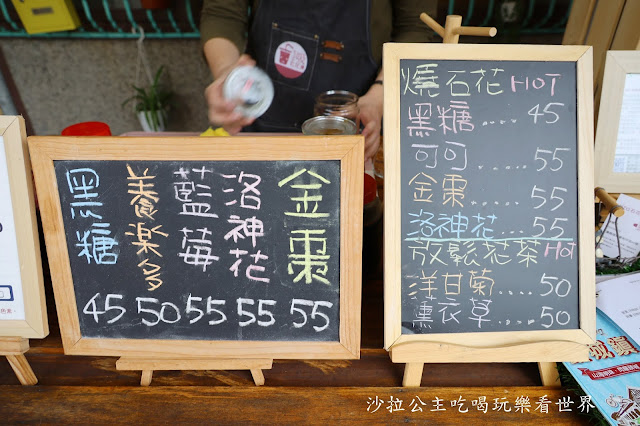 黑糖 45
養樂多 50
藍莓 55
洛神花 55
金棗 55
燒石花 HOT
黑糖.... 45
可可..... 55
金棗.... 55
洛神花.... 55
放鬆花茶 Hot
洋甘菊.... 50
薰衣草.... 50
沙拉公主吃喝玩樂看世界